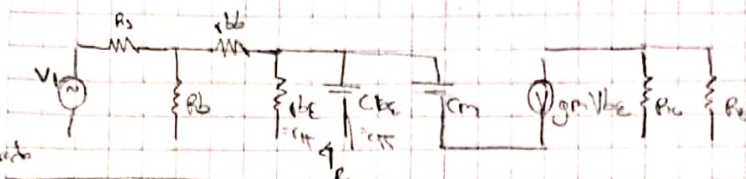 Rs
rbb
V1
Rb
rbe
=rπ
Cbe
=cπ
Cm
gmVbe
Rc